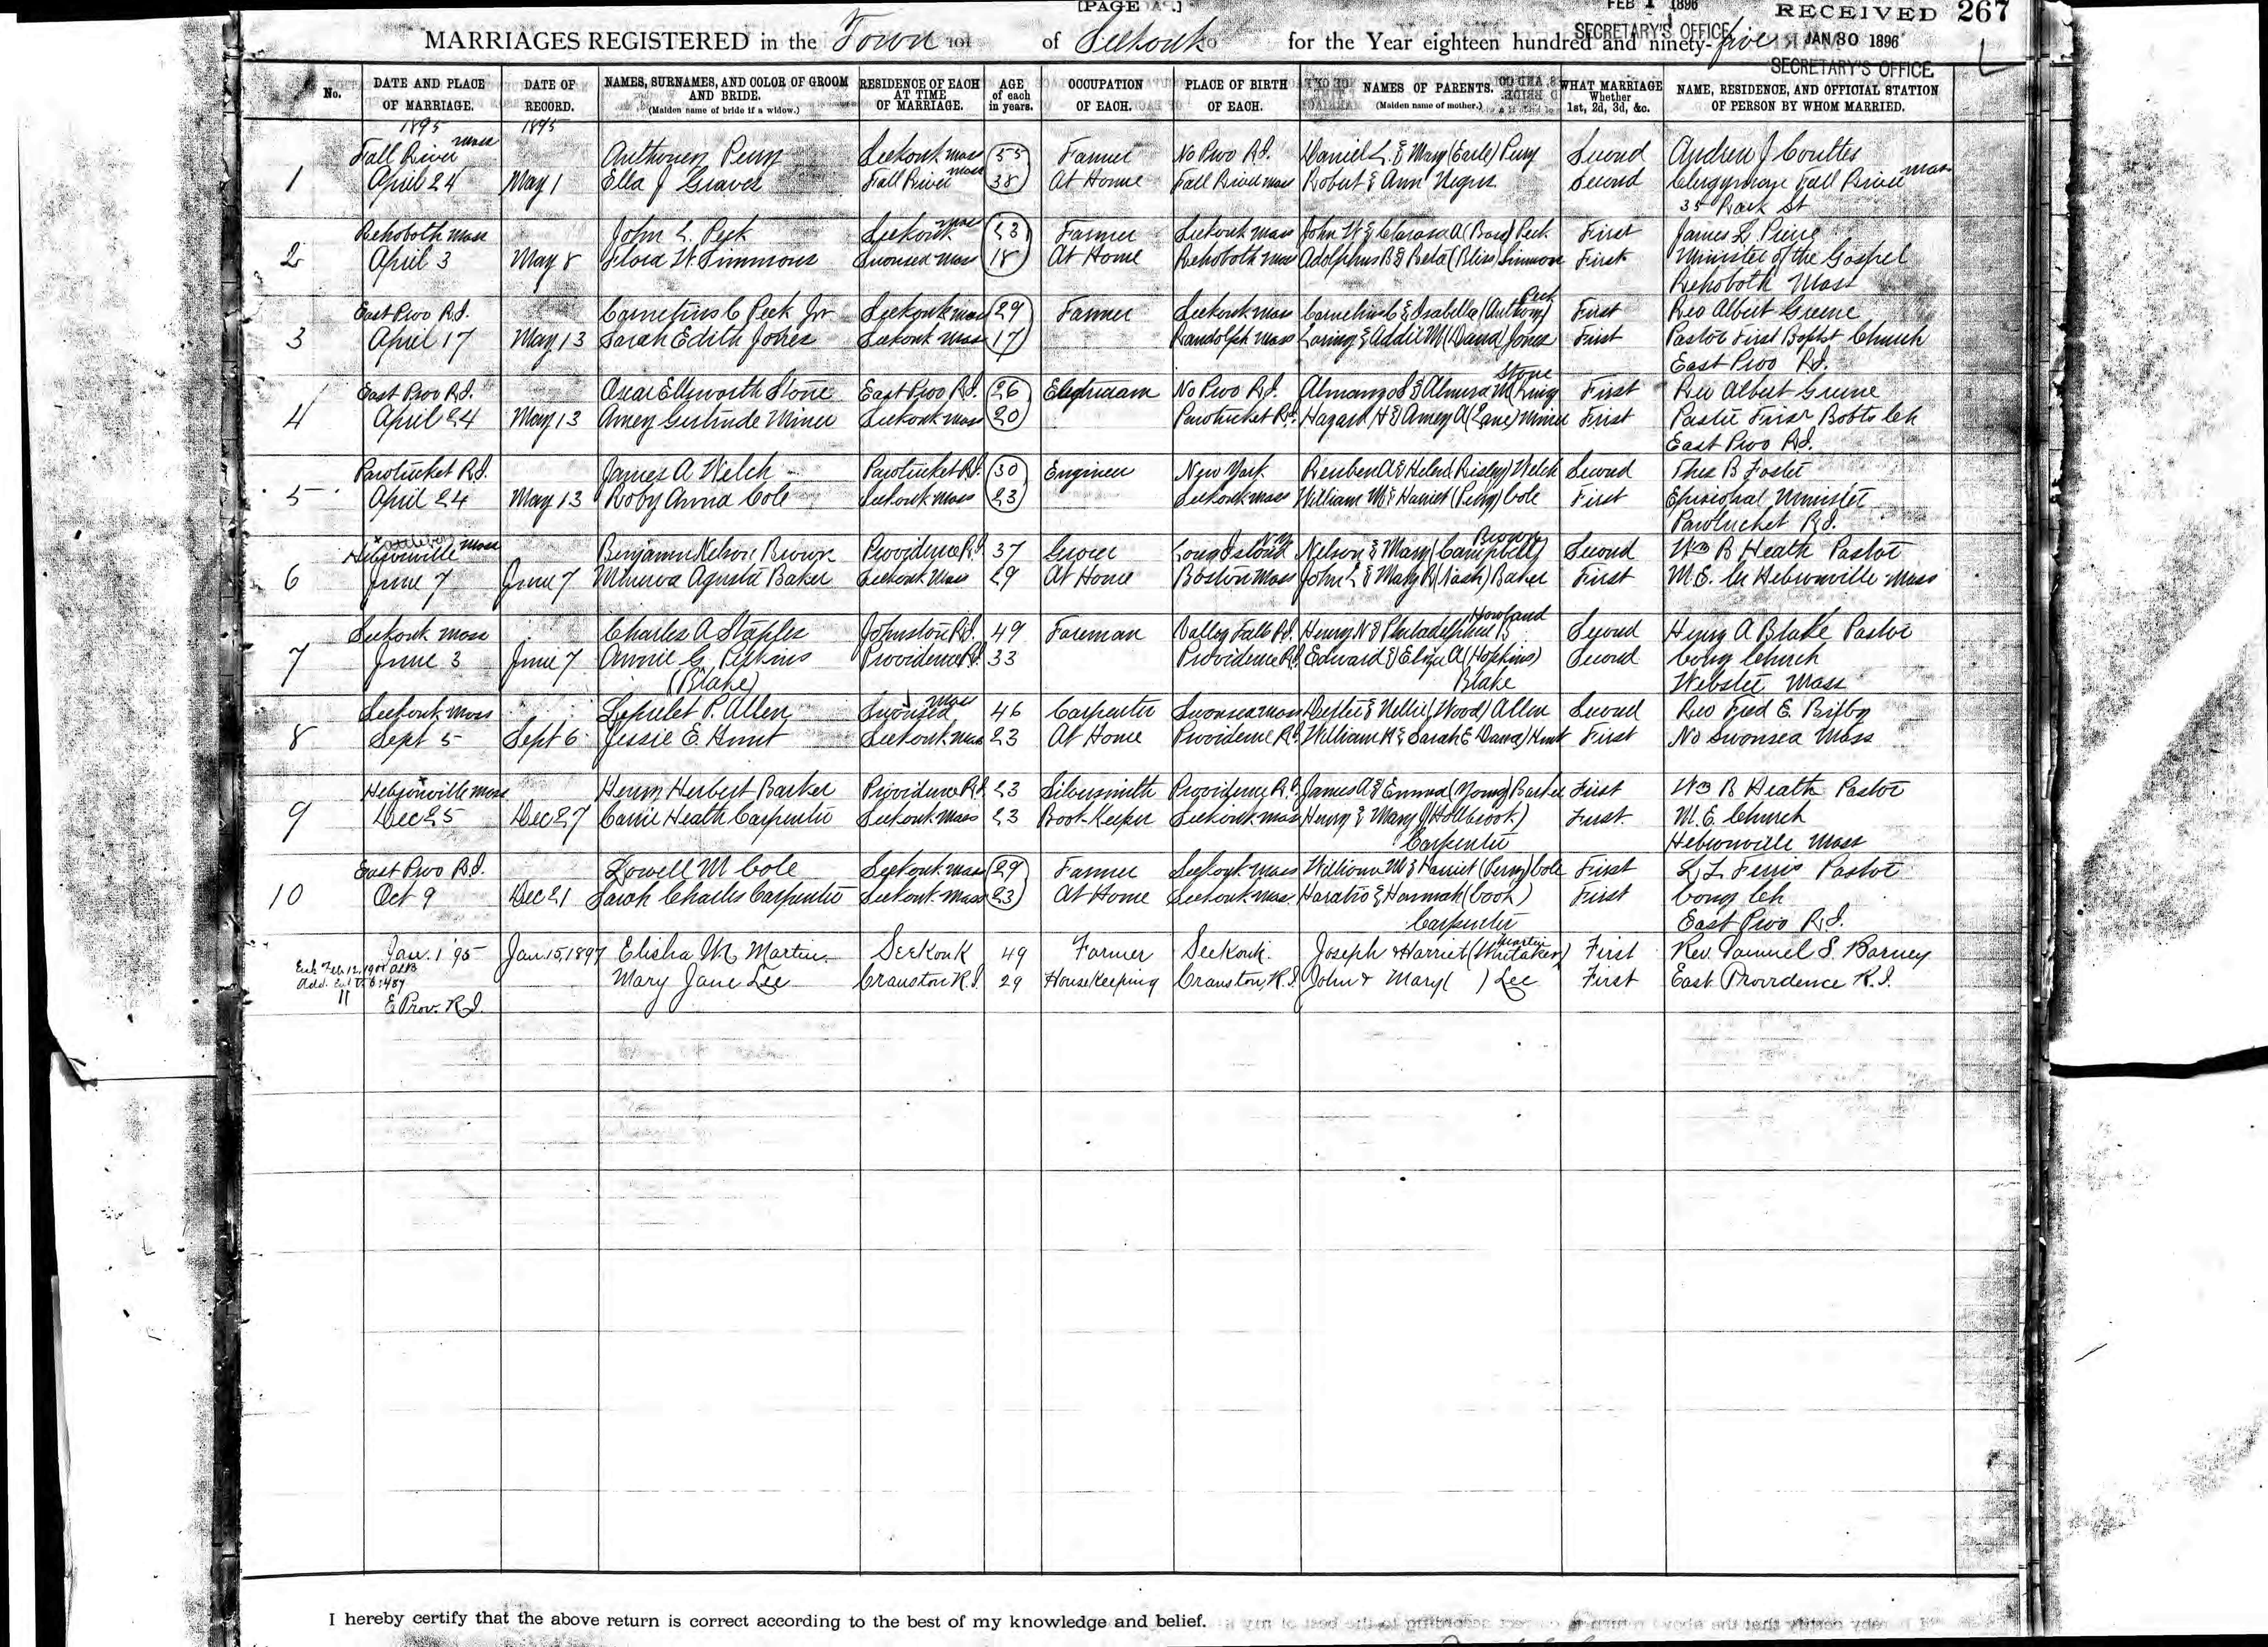 [PAGE
FEB 1 1896
SECRETARY'S OFFICE
RECEIVED 267
JAN 30 1896
SECRETARY'S OFFICE.
MARRIAGES REGISTERED in the Town of Seekonk for the Year eighteen hundred and ninety-five
No. DATE AND PLACE OF MARRIAGE. DATE OF RECORD. NAMES, SURNAMES, AND COLOR OF GROOM AND BRIDE. (Maiden name of bride if a widow.) RESIDENCE OF EACH AT TIME OF MARRIAGE. AGE of each in years. OCCUPATION OF EACH. PLACE OF BIRTH OF EACH. NAMES OF PARENTS. (Maiden name of mother.) WHAT MARRIAGE Whether 1st, 2d, 3d, &c. NAME, RESIDENCE, AND OFFICIAL STATION OF PERSON BY WHOM MARRIED.
1895 1895
Fall River Mass Perry Seekonk Mass 55 Farmer No Prov R.I. Daniel L. & Mary (Earle) Perry Second Andrew J Coultes
1 April 24 May 1 Ella J Graves Fall River Mass 38 At Home Fall River Mass Robert & Ann Negus Second Clergyman Fall River Mass
35 Rock St
Rehoboth Mass John L. Peck Seekonk Mass 23 Farmer Seekonk Mass John W & Peck First James L Pierce
2 April 3 May 8 Flora W. Simmons Swansea Mass 18 At Home Rehoboth Mass Adolphus B & (Bliss) Simmons First Minister of the Gospel
Rehoboth Mass
East Prov R.I. Cornelius C Peck Jr Seekonk Mass 29 Farmer Seekonk Mass Cornelius C & Isabella (Anthony) Peck First Rev Albert Greene
3 April 17 May 13 Sarah Edith Jones Seekonk Mass 17 Randolph Mass Loring & Addie M (Dana) Jones First Pastor First Baptst Church
East Prov R.I.
East Prov R.I. Oscar Ellsworth Stone East Prov R.I. 26 No Prov R.I. & Almira M (King) Stone First Rev Albert Greene
4 April 24 May 13 Amey Gertrude Miner Seekonk Mass 20 Pawtucket R.I. Hazard H & Amey A (Lane) Miner First Pastor First ch
East Prov R.I.
Pawtucket R.I. James A Welch Pawtucket R.I. 30 Engineer New York Reuben A & Helen (Risley) Welch Second Thos B Foster
5 April 24 May 13 Roby Anna Cole Seekonk Mass 23 Seekonk Mass William M & Harriet (Perry) Cole First Episcopal Minister
Pawtucket R.I.
Hebronville Mass Benjamin Nelson Brown Providence R.I. 37 Grocer Long Island N.Y. Nelson & Mary (Campbell) Brown Second Wm B Heath Pastor
6 June 7 June 7 Minerva Agusta Baker Seekonk Mass 29 At Home Boston Mass John L & Mary R (Nash) Baker First M.E. Ch Hebronville Mass
Seekonk Mass Charles A Staples Johnston R.I. 49 Foreman Valley Falls R.I. Henry N & Philadelphia B Howland Second Henry A Blake Pastor
7 June 3 June 7 Annie G. Perkins Providence R.I. 33 Providence R.I. Edward & Eliza A (Hopkins) Second Cong Church
(Blake) Blake Webster Mass
Seekonk Mass P. Allen Swansea Mass 46 Carpenter Swansea Mass & Nellie (Wood) Allen Second Rev Fred E. Bixby
8 Sept 5 Sept 6 Jessie E. Hunt Seekonk Mass 23 At Home Providence R.I. William H & Sarah E (Dana) Hunt First No Swansea Mass
Hebronville Mass Henry Herbert Barker Providence R.I. 23 Silversmith Providence R.I. James A & Emma (Young) Barker First Wm B Heath Pastor
9 Dec 25 Dec 27 Carrie Heath Carpenter Seekonk Mass 23 Book-Keeper Seekonk Mass Henry & Mary J (Holbrook) First M.E. Church
Carpenter Hebronville Mass
East Prov R.I. Lowell M Cole Seekonk Mass 29 Farmer Seekonk Mass William M & Harriet (Perry) Cole First Pastor
10 Oct 9 Dec 21 Sarah Charles Carpenter Seekonk Mass 23 At Home Seekonk Mass Horatio & Hannah (Cook) First Cong Ch
Carpenter East Prov R.I.
Jan. 1 '95 Jan. 15, 1897 Elisha W. Martin Seekonk 49 Farmer Seekonk. Joseph & Harriet (Whitaker) Martin First Rev. Samuel S. Barney
11 Mary Jane Lee Cranston R.I. 29 Housekeeping Cranston, R.I. John & Mary ( ) Lee First East Providence R.I.
E. Prov. R.I.
I hereby certify that the above return is correct according to the best of my knowledge and belief.